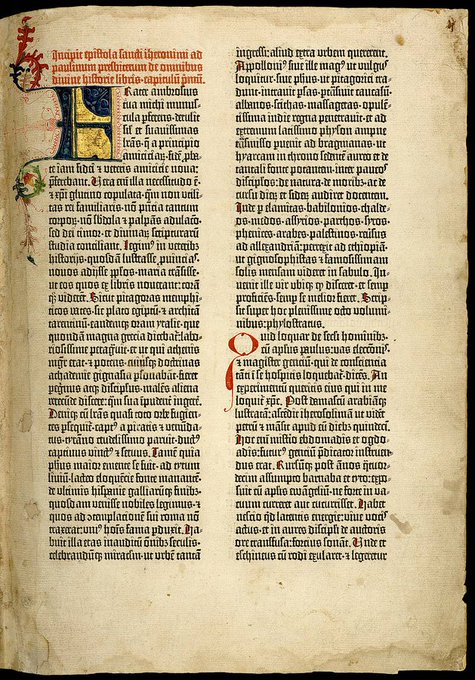 Incipit epistola sancti iheronimi ad
paulinum presbiterum de omnibus
divine historie libris. capitulū pmū.
Frater ambrosius
tua michi munus-
cula pferens. detulit
sił et suavissimas
lrās. q̄ a principio
amiciciaꝝ. fidē pba-
te iam fidei ⁊ veteris amicicie nova:
pferebant. Vera eni illa necessitudo ē.
⁊ xpi glutino copulata. qm non utili-
tas rei familiaris. nō pñtia tantum
corpoꝝ. nō sbdola ⁊ palpās adulacō.
sed dei timor. et divinaꝝ scripturarū
studia conciliant. Legim⁹ in veterib⁹
historijs. quosdā lustrasse ꝓvincias.
novos adijsse plos. maria trāsisse.
ut eos quos ex libris noverant: corā
qꝫ viderēt. Sicut pitagoras memphi-
ticos vates. sic plato egiptū. ⁊ architā
tarentinū. eandemqꝫ oram ytalie. que
quondā magna grecia dicebat̄: labo-
riosissime peragravit. et ut qui athenis
mgr̄ erat. ⁊ potens. cuiusqꝫ doctrinas
achademie gignasia psonabāt. fieret
peginus atqꝫ discipulus. malēs aliena
verecūde discere: qm sua īpudent̄ ingere.
Deniqꝫ cū lrās quasi toto orbe fugien-
tes psequit̄. capt⁹ a piratis ⁊ venūda-
tus. tyrāno crudelissimo paruit. duct⁹
captivus vinct⁹ ⁊ servus. Tamē quia
phus: maior emente se fuit. ad tytum
liviū. lacteo eloquētie fonte manantē.
de ultimis hispanie galliarūqꝫ finib⁹.
quosdam venisse nobiles legimus: ⁊
quos ad ɔtemplacionē sui roma nō
traxerat: uni⁹ hoīs fama pduxit. Ha-
buit illa etas inauditū oīnib⁹ seculis.
celebrandūqꝫ miraclm. ut urbē tantā
ingressi: aliud extra urbem quererent.
Apolloni⁹ sive ille mag⁹ ut vulgus
loquitur. sive phus. ut pitagorici tra-
dunt. intravit psas. ptrāsivit caucasū.
albanos. scithas. massagetas. opulē-
tissima indie regna penetravit. et ad
extremum latissimo physon ampne
trāsmisso pvenit ad bragmanas. ut
hyarcam in throno sedentē aureo et de
tantali fonte potantem. inter paucos
disciplos. de natura. de morib⁹. ac de
cursu dieꝝ et sideꝝ audiret docentem.
Inde p elamitas. babilonios. chalde-
os. medos. assyrios. parthos. syros.
phenices. arabes. palestinos. reūsus
ad allexandriā: perrexit ad ethiopiā.
ut gignosophistas ⁊ famosissimam
solis mensam videret in sabulo. In-
venit ille vir ubiqꝫ qd disceret. et semp
proficiēs. semp se melior fieret. Scrip-
sit super hoc plenissime octo volumi-
nibus: phylostratus.
Quid loquar de secli hominib⁹.
cū apłus paulus: vas electōnis.
⁊ magister genciū. qui de consciencia
tāti ī se hospitis loquebat̄. dicēs. An
experimentū queritis eius qui in me
loquit̄ xpc. Post damascū arabiāqꝫ
lustratā: ascēdit iherosolimā ut vidēt
petrū ⁊ māsit apud eū dieb⁹ quindeci.
Hoc eni misterio ebdomadis et ogdo-
adis: futur⁹ genciū pdicator instruen-
dus erat. Rursūqꝫ post ānos q̄tuor-
decim assumpto barnaba et tyto: expo-
suit cū apłis evāgeliū. ne forte in va-
cuum curreret aut cucurrisset. Habet
nescio qd latentis energie: vive vocis
actus. et in aures discipli de auctoris
ore transfusa: forcius sonat. Unde et
eschineus cū rodi exularet. ⁊ legeretur